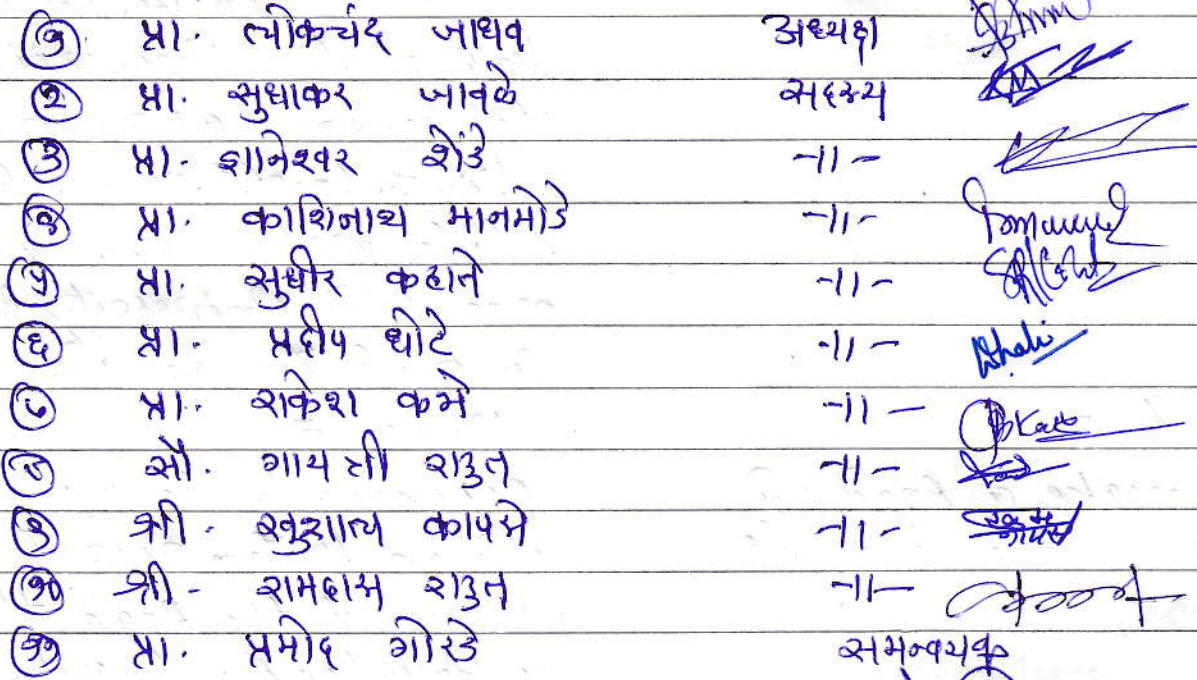 १ प्रा. लोकचंद जाधव अध्यक्ष
२ प्रा. सुधाकर जावळे सदस्य
३ प्रा. ज्ञानेश्वर शेंडे -॥-
४ प्रा. काशिनाथ मानमोडे -॥-
५ प्रा. सुधीर कहाते -॥-
६ प्रा. प्रदीप धोटे -॥-
७ प्रा. राकेश कभे -॥-
८ सौ. गायत्री राऊत -॥-
९ श्री. खुशाल कापसे -॥-
१० श्री - रामदास राऊत -॥-
११ प्रा. प्रमोद गोरडे समन्वयक